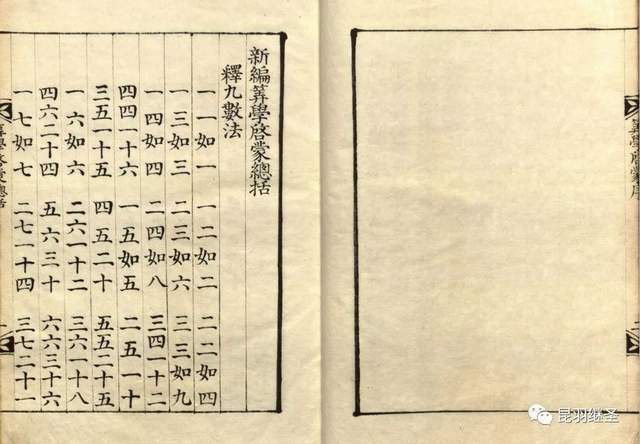 筭學啓蒙序
新編筭學啓蒙總括
釋九數法
一一如一 一二如二 二二如四
一三如三 二三如六 三三如九
一四如四 二四如八 三四一十二
四四一十六 一五如五 二五一十
三五一十五 四五二十 五五二十五
一六如六 二六一十二 三六一十八
四六二十四 五六三十 六六三十六
一七如七 二七一十四 三七二十一
筭學啓蒙總括 一
昆羽继圣